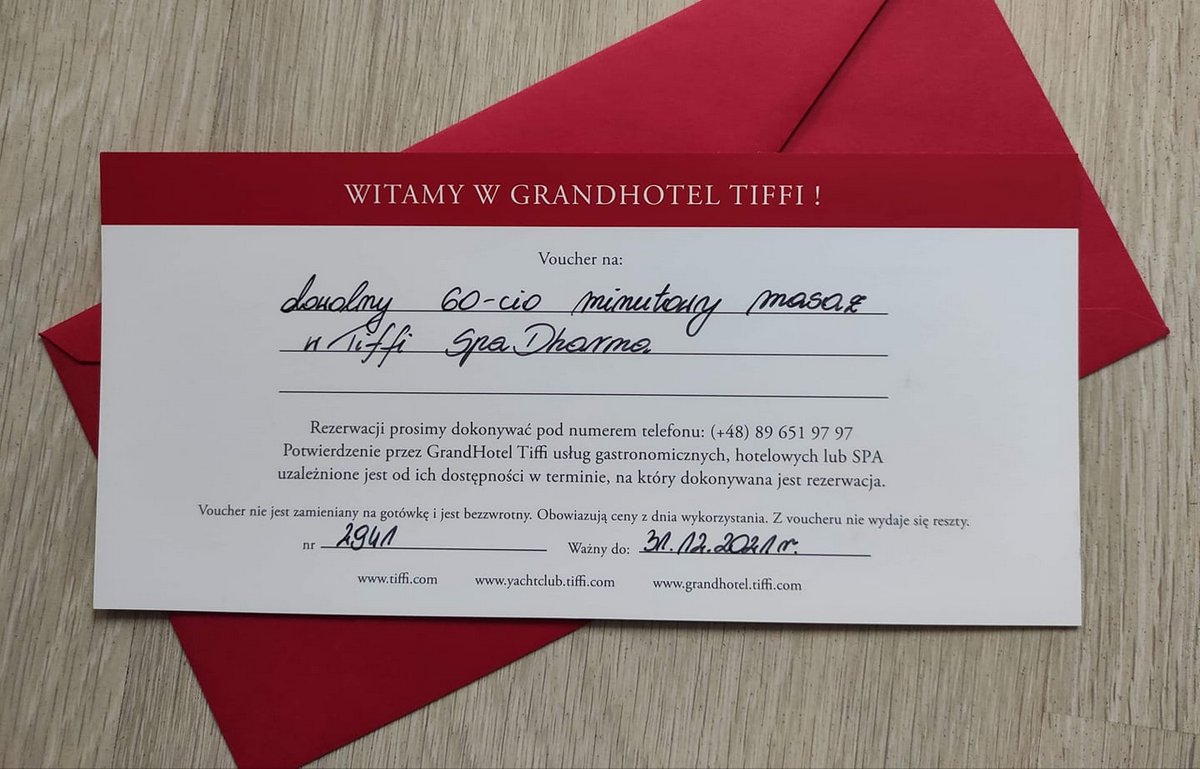 WITAMY W GRANDHOTEL TIFFI !
Voucher na:
dowolny 60-cio minutowy masaż
w Tiffi Spa Dharma
Rezerwacji prosimy dokonywać pod numerem telefonu: (+48) 89 651 97 97
Potwierdzenie przez GrandHotel Tiffi usług gastronomicznych, hotelowych lub SPA
uzależnione jest od ich dostępności w terminie, na który dokonywana jest rezerwacja.
Voucher nie jest zamieniany na gotówkę i jest bezzwrotny. Obowiazują ceny z dnia wykorzystania. Z voucheru nie wydaje się reszty.
nr 2941 Ważny do: 31.12.2021 r.
www.tiffi.com www.yachtclub.tiffi.com www.grandhotel.tiffi.com